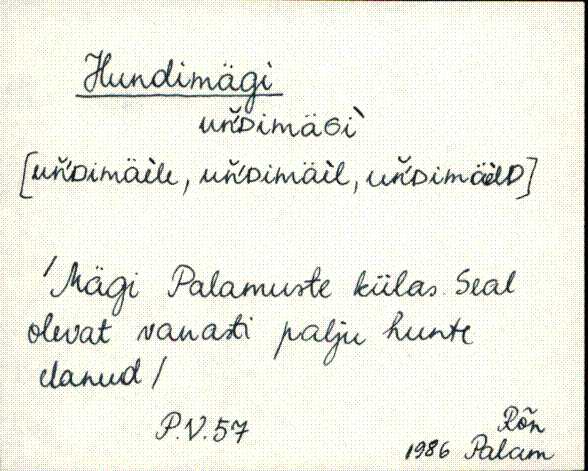 Hundimägi
uňᴅimäɢì
[uňᴅimäèle, uňᴅimäèl, uňᴅimäèlᴅ]
/Mägi Palamuste külas. Seal
olevat vanasti palju hunte
elanud/
P.V.57
Rõn
1986 Palam